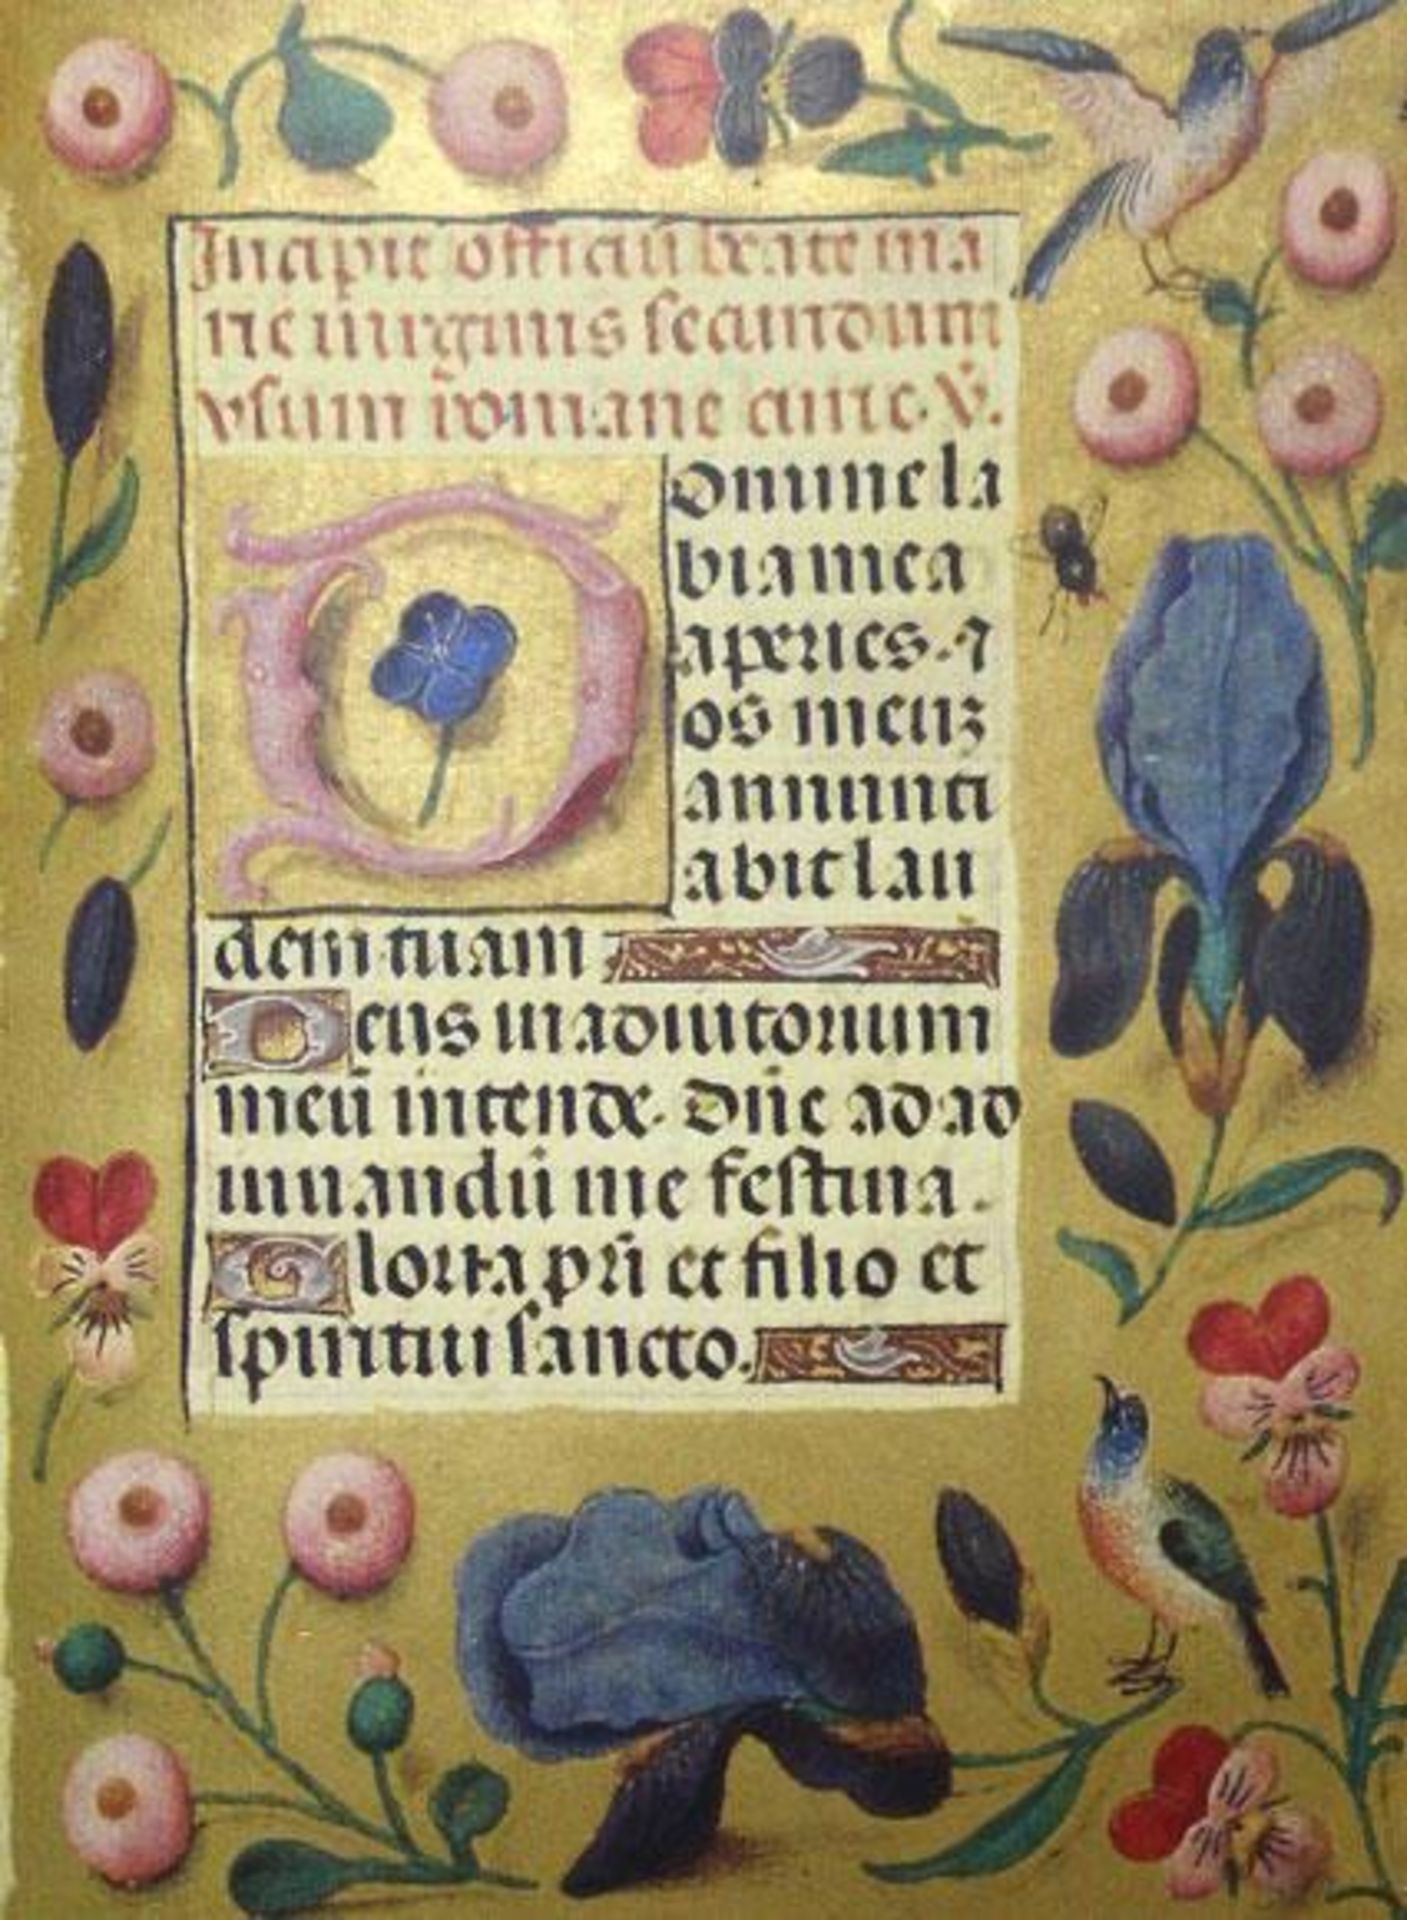 Incipit officiū beate ma
rie uirginis secundum
vsum romane curie. V̄.
Domine la
bia mea
aperies. ⁊
os meuʒ
annunti
abit lau
dem tuam
Deus in adiutorium
meū intende. Dn̄e ad ad
iuuandū me festina.
Gloria pr̄i et filio et
spiritui sancto.